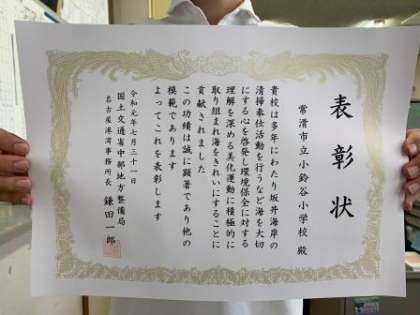 表彰状
常滑市立小鈴谷小学校 殿
貴校は多年にわたり坂井海岸の
清掃奉仕活動を行うなど海を大切
にする心を啓発し環境保全に対する
理解を深める美化運動に積極的に
取り組まれ海をきれいにすることに
貢献されました
この功績は誠に顕著であり他の
模範であります
よってこれを表彰します
令和元年七月三十一日
国土交通省中部地方整備局
名古屋港湾事務所長 鎌田一郎